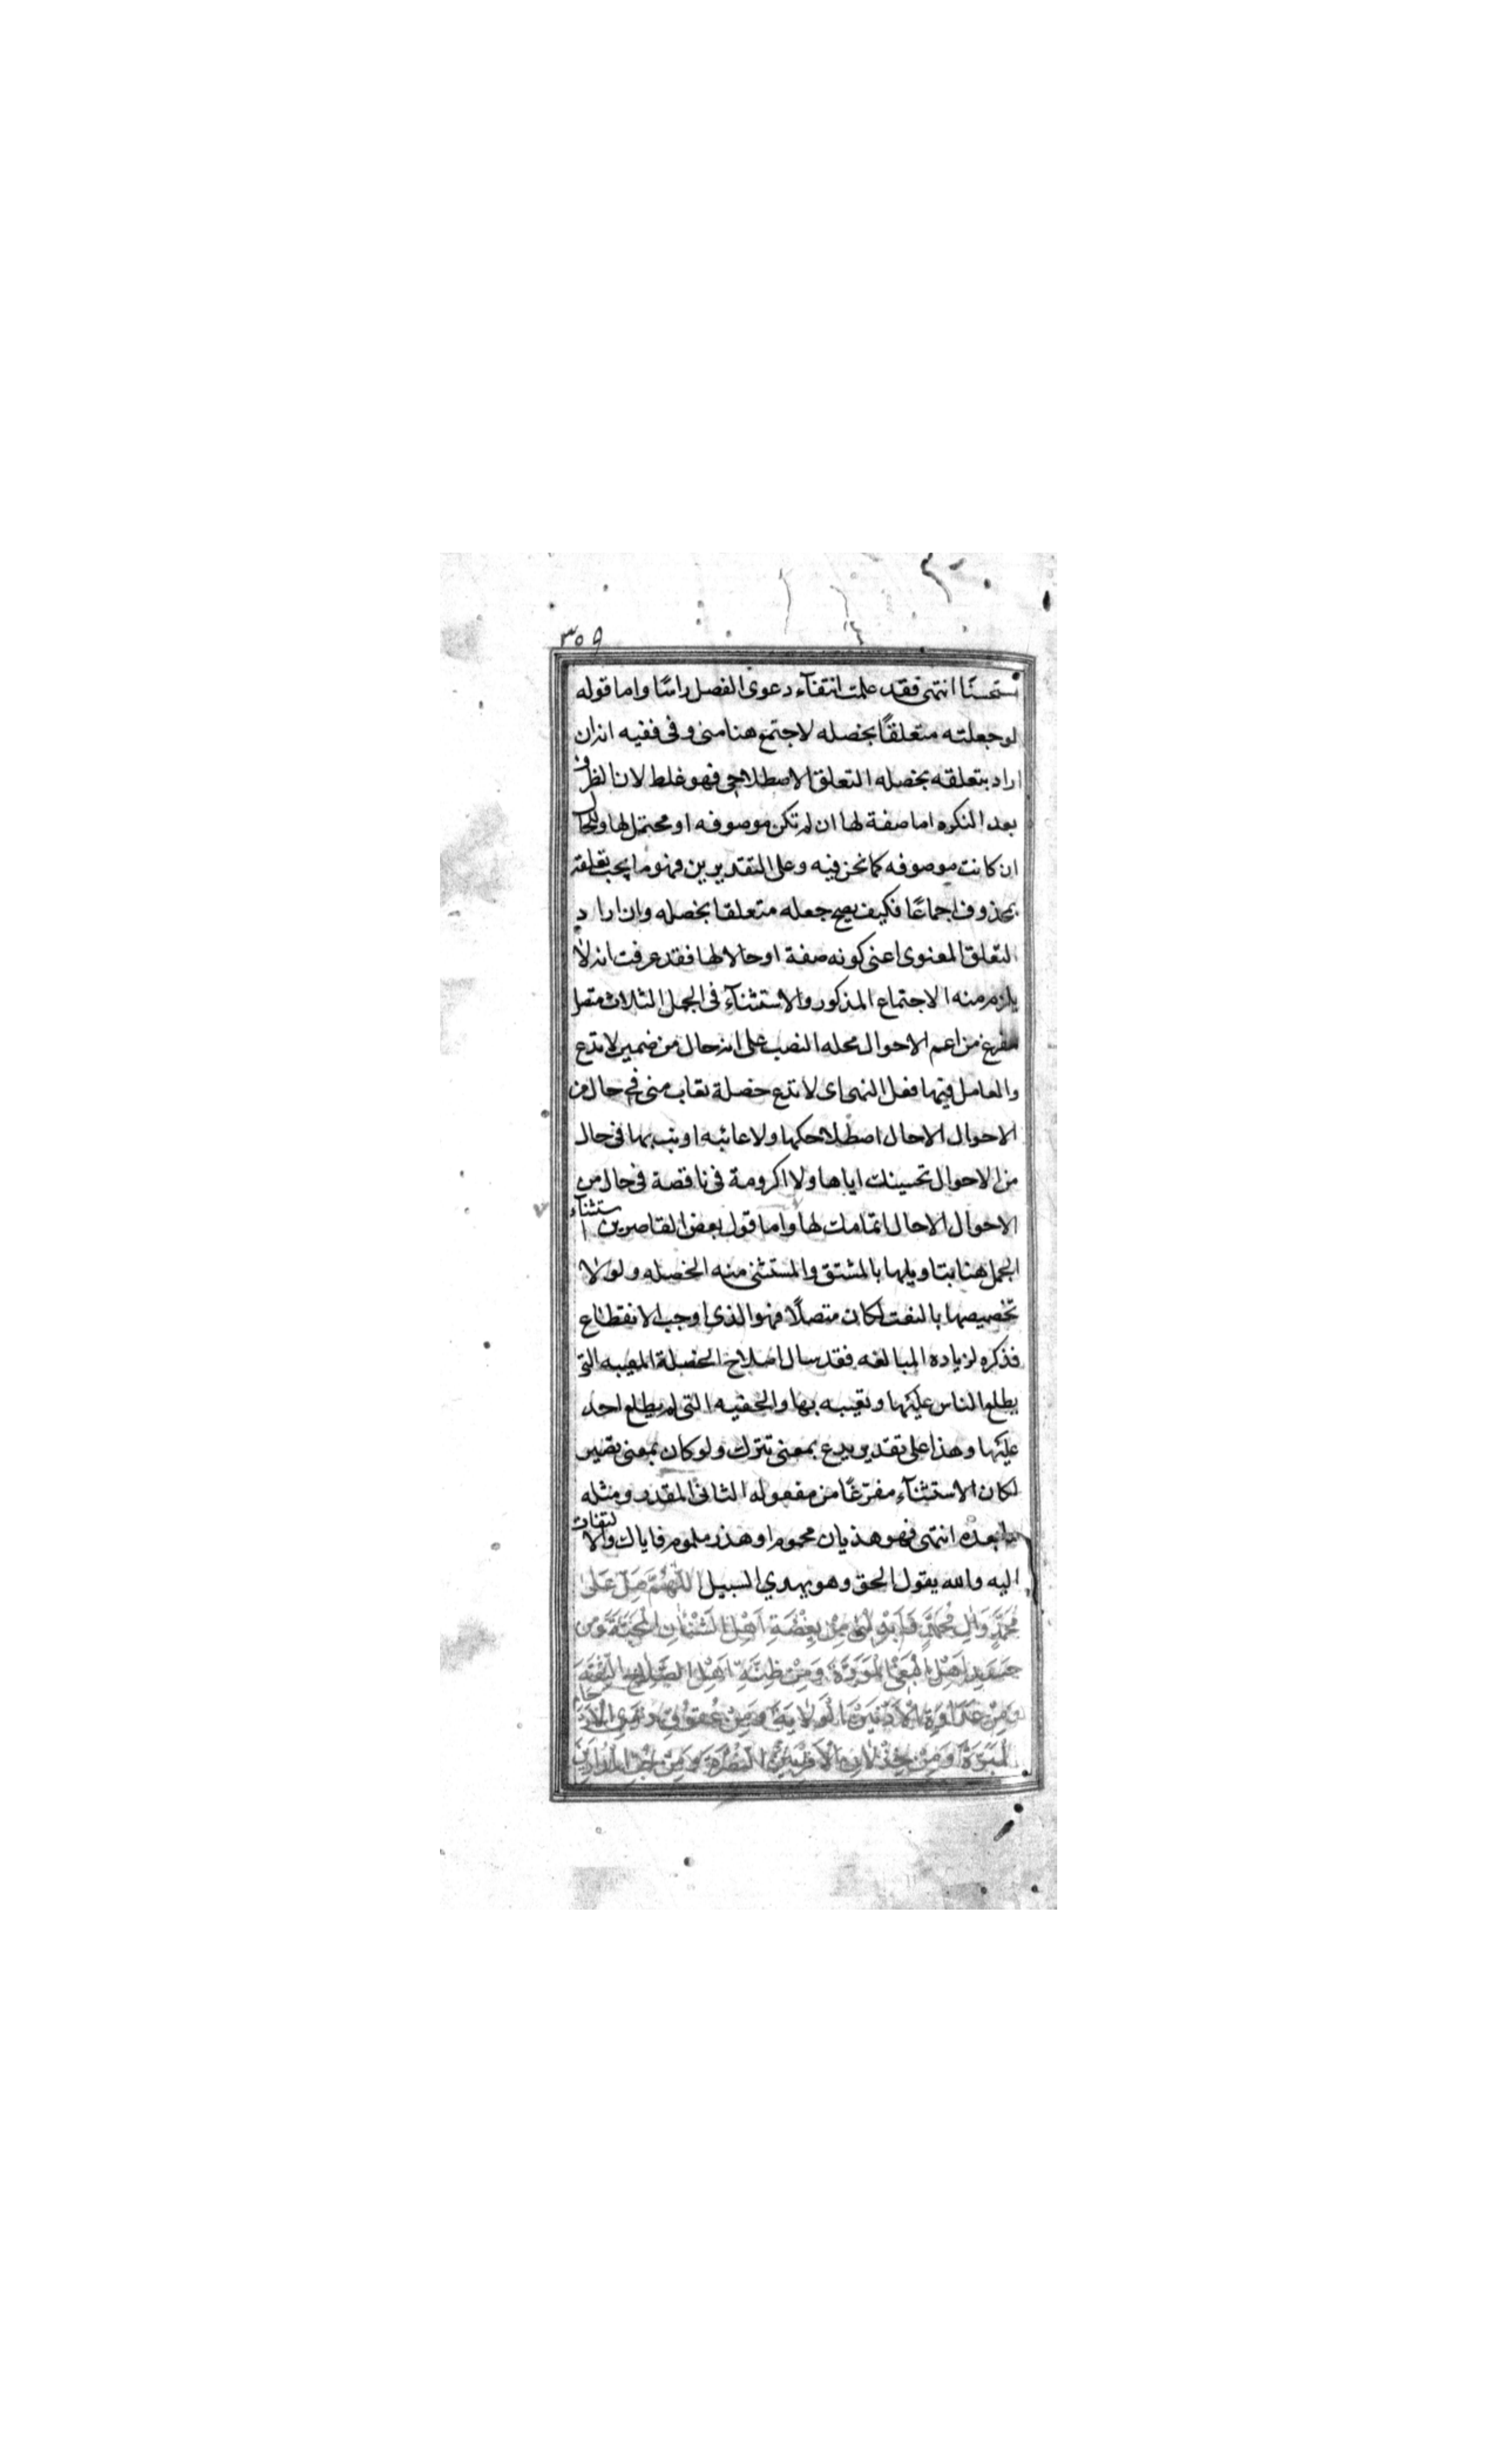 ٣٥٩
مستحسنا انتهى فقد علمت انتفآء دعوى الفصل راسًا واما قوله
لو جعلته متعلقًا بخصله لاجتمع هنا منى وفى ففيه انه ان
اراد بتعلقه بخصله التعلق الاصطلاحى فهو غلط لان الظرف
بعد النكره اما صفة لها ان لم تكن موصوفه او محتمل لها وللحال
ان كانت موصوفه كما نحن فيه وعلى التقديرين فهو ما يجب تعلقه
بمحذوف اجماعًا فكيف يصح جعله متعلقا بخصله وان اراد
التعلق المعنوى اعنى كونه صفة او حالا لها فقد عرفت انه لا
يلزم منه الاجتماع المذكور والاستثنآء فى الجمل الثلاث متصل
مفرغ من اعم الاحوال محله النصب على انه حال من ضمير لا تدع
والعامل فيها فعل النهى اى لا تدع خصلة تعاب منى فى حال من
الاحوال الا حال اصطلاحكها ولا عائبه اونب بها فى حال
من الاحوال تحسينك اياها ولا اكرومة فى ناقصة فى حال من
الاحوال الا حال اتمامك لها واما قول بعض القاصرين استثنآء
الجمل هنا بتاويلها بالمشتق والمستثنى منه الخصله ولولا
تخصيصها بالنعت لكان متصلًا فهو الذى اوجب الانقطاع
فذكره لزياده المبالغه فقد سال اصلاح الخصلة المعيبه التى
يطلع الناس عليها وتعيبه بها والخفيه التى لم يطلع احد
عليها وهذا على تقدير يدع بمعنى تترك ولو كان بمعنى تصير
لكان الاستثنآء مفرّغًا من مفعوله الثانى المقدر ومثله
ما بعده انتهى فهو هذيان محموم او هذر ملموم فاياك والالتفات
اليه والله يقول الحق وهو يهدي السبيل اللّٰهُمَّ صَلِّ عَلىٰ
مُحَمَّدٍ وَاٰلِ مُحَمَّدٍ وَاَبْدِلْنى مِنْ بِغْضَةِ اَهْلِ الشَّنْاٰنِ الْمَحَبَّةَ وَمِنْ
حَسَدِ اَهْلِ الْبَغْىِ الْمَوَدَّةَ وَمِنْ ظِنَّةِ اَهْلِ الصَّلاٰحِ الثِّقَةَ
وَمِنْ عَدَاوَةِ الْاَدْنَيْنَ الْوَلاٰيَةَ وَمِنْ عُقُوقِ ذَوِى الْاَرْحَامِ
الْمَبَرَّةَ وَمِنْ خِذْلاٰنِ الْاَقْرَبِيْنَ النُّصْرَةَ وَمِنْ حُبِّ الْمُدَارِيْنَ